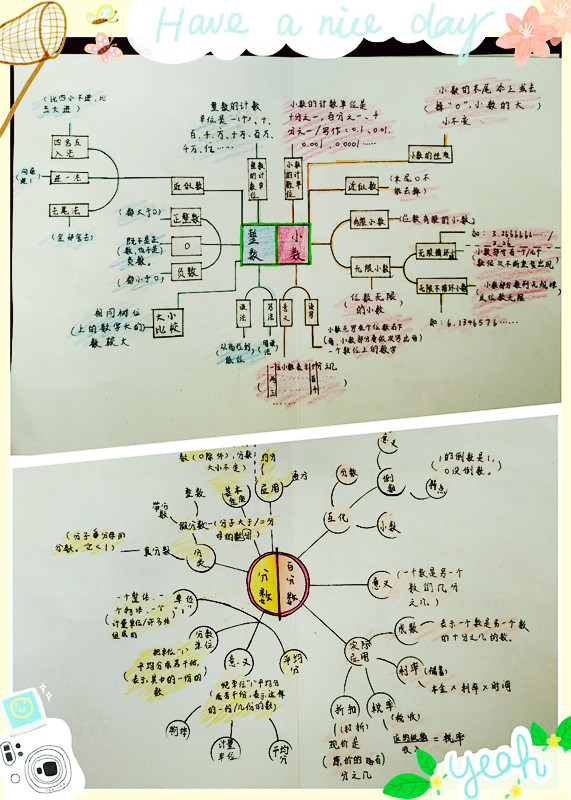 Have a nice day
(比四小不进,比
五大进)
四舍五
入法
进一法
去尾法
(全部舍去)
近似数
整数的计数
单位是一(个)、十、
百、千、万、十万、百万、
千万、亿……
整数
的计
数单
位
小数的计数单位是
十分之一、百分之一、千
分之一/写作:0.1、0.01、
0.001、0.0001……
小数
的计
数单
位
小数的末尾添上或去
掉“0”,小数的大
小不变
小数的性质
近似数
(末尾0不
能去掉)
正整数
(都大于0)
0
既不是正
数,也不是
负数
负数
(都小于0)
整数
小数
有限小数
(位数有限的小数)
无限小数
位数无限
的小数
无限循环
无限不循环小数
如:6.1346576……
大小
比较
相同数位
上的数字大的
数较大
读法
写法
意义
读写
从高位到
低位
数(0除外),分数
大小不变
约分
通分
应用
基本
性质
整数
带分
数
假分数
(分子大于/=分
母的数)
真分数
分类
(分子<分母的
分数。之<1)
分数
百分数
一个整体、一
个物体、一个
计量单位/许多物
组成的
单位
“1”
分数
单位
把单位“1”
平均分成若干份,
表示其中的一份的
数
意义
把单位“1”平均分
成若干份,表示这样
的一份/几份的数
平均
分
物体
计量
单位
平均
分
意义
1的倒数是1,
0没倒数。
倒数
特点
分数
互化
小数
意义
(一个数是另一个
数的几分
之几)
成数
表示一个数是另一个数
的十分之几的数。
实际
应用
利率
(储蓄)
本金×利率×时间
折扣
(打折)
现价是
原价的百
分之几
税率
(纳税)
收入
=税率
yeah